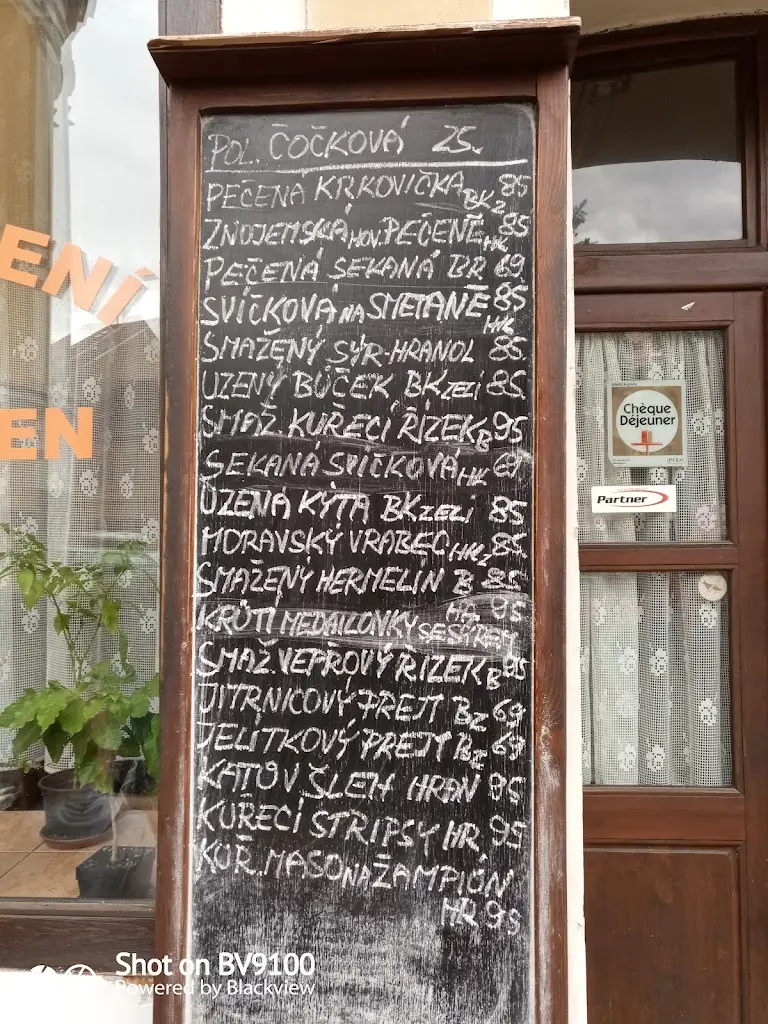 POL. ČOČKOVÁ 25.
PEČENÁ KRKOVIČKA BKZ 85
ZNOJEMSKÁ HOV. PEČENĚ HK 85
PEČENÁ SEKANÁ BR 69
SVÍČKOVÁ NA SMETANĚ HK 85
SMAŽENÝ SÝR-HRANOL 85.
UZENÝ BŮČEK BK ZELÍ 85
SMAŽ. KUŘECÍ ŘÍZEK B 95
SEKANÁ SVÍČKOVÁ HK 69
UZENÁ KÝTA BK ZELÍ 85
MORAVSKÝ VRABEC HK Z 85.
SMAŽENÝ HERMELÍN B 85
KRŮTÍ MEDAILONKY SE SÝREM HR. 95
SMAŽ. VEPŘOVÝ ŘÍZEK B 95
JITRNICOVÝ PREJT BZ 69
JELÍTKOVÝ PREJT BZ 69
KATŮV ŠLEH HRAN 95
KUŘECÍ STRIPSY HR, 95
KUŘ. MASO NA ŽAMPIÓN
HR 95
ENÍ
EN
Chèque
Déjeuner
Partner
Shot on BV9100
Powered by Blackview